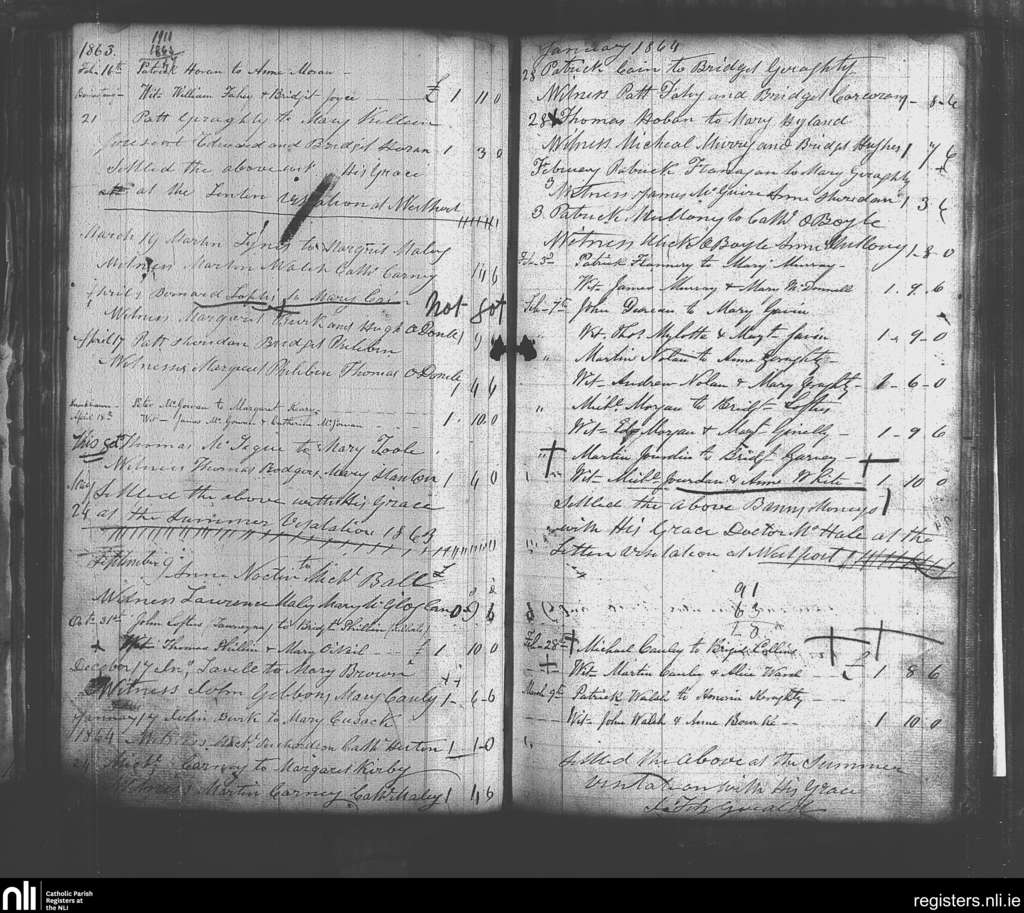 1863.
1911
1863
Feb. 16th Patrick Horan to Anne Moran -
Wit- William Fahy & Bridgit Joyce £ 1 11 0
21 Patt Geraghty to Mary Killein
Edward and Bridget Horan 1 3 0
Settled the above with His Grace
at the Lenten Visitation at Westport
March 19 Martin Lynes to Margret Maley
Witness Martin Walsh Cath Carney 1 4 6
April 5 Bernard Loftis to Mary Cain Not got
Witness Margaret Burk and Hugh O Donel
April 17 Patt Sheridan Bridget Philbin
Witness Margaret Philbin Thomas O Donel 1 4 6
April 18th Peter McGowan to Margaret Kearns
Wit- James McGowan & Catherine McGowan 1 . 10. 0
This got Thomas McTigue to Mary Toole
Witness Thomas Rodgers Mary Stanton 1 4 0
May Settled the above with His Grace
24 at the Summer Visatation 1863
September 9 Anne Noctin to Mick Ball £
Witness Lawrence Maley Mary McGloglan 0 9 6
Oct. 31st John Loftus to Bridgt Philbin
Wit Thomas Philbin & Mary O'Neil £ 1 10 0
December 17 Jno. Lavelle to Mary Brown
Witness John Gibbons Mary Cauly 1 - 6 - 6
January 17 John Burk to Mary Cusack
1864 Witness Richardson Cath Heston 1 1 - 0
Carney to Margaret Kirby
Witness Martin Carney Cath Maley 1 4 6
January 1864
28 Patrick Cain to Bridget Geraghty
Witness Patt Fahy and Bridget Corcoran 1 - 8 - 6
28 Thomas Hoban to Mary Hyland
Witness Micheal Murry and Bridget Hughes 1 7 6
February Patrick Flanagan to Mary Geraghty
3 Witness James McGuire Anne Sheridan 1 3 6
3. Patrick Mullony to Cath O Boyle
Witness Mick O Boyle Anne Mullony 1 - 8 - 0
Feb. 3d Patrick Flannery to Mary Murray -
Wt- James Murray & Mary McDonnell 1 . 9 . 6
Feb. 7th John Durcan to Mary Gavin
Wt- Thos. Mylotte & Margt. Gavin 1 - 9 - 0
" Martin Nolan to Anne Geraghty -
Wit- Andrew Nolan & Mary Geraghty - 1 - 6 - 0
" Michl. Morgan to Bridgt- Loftus
Wit- Edw. Morgan & Margt- Ginelly - 1 - 9 6
" Martin Jourdan to Bridgt. Garvey -
Wit- Michl. Jourdan & Anne White - 1 10 0
Settled the above Banns Moneys
with His Grace Doctor McHale at the
Lenten Visitation at Westport
91
63
28
Feb. 28th Michael Cauley to Brigid Collins £
Wit- Martin Cauley & Alice Ward 1 8 6
March 9th Patrick Walsh to Honoria Keaghty
Wit- John Walsh & Anne Bourke - - 1 10 0
Settled the above at the Summer
Visitation with His Grace
nli
Catholic Parish
Registers at
the NLI
registers.nli.ie